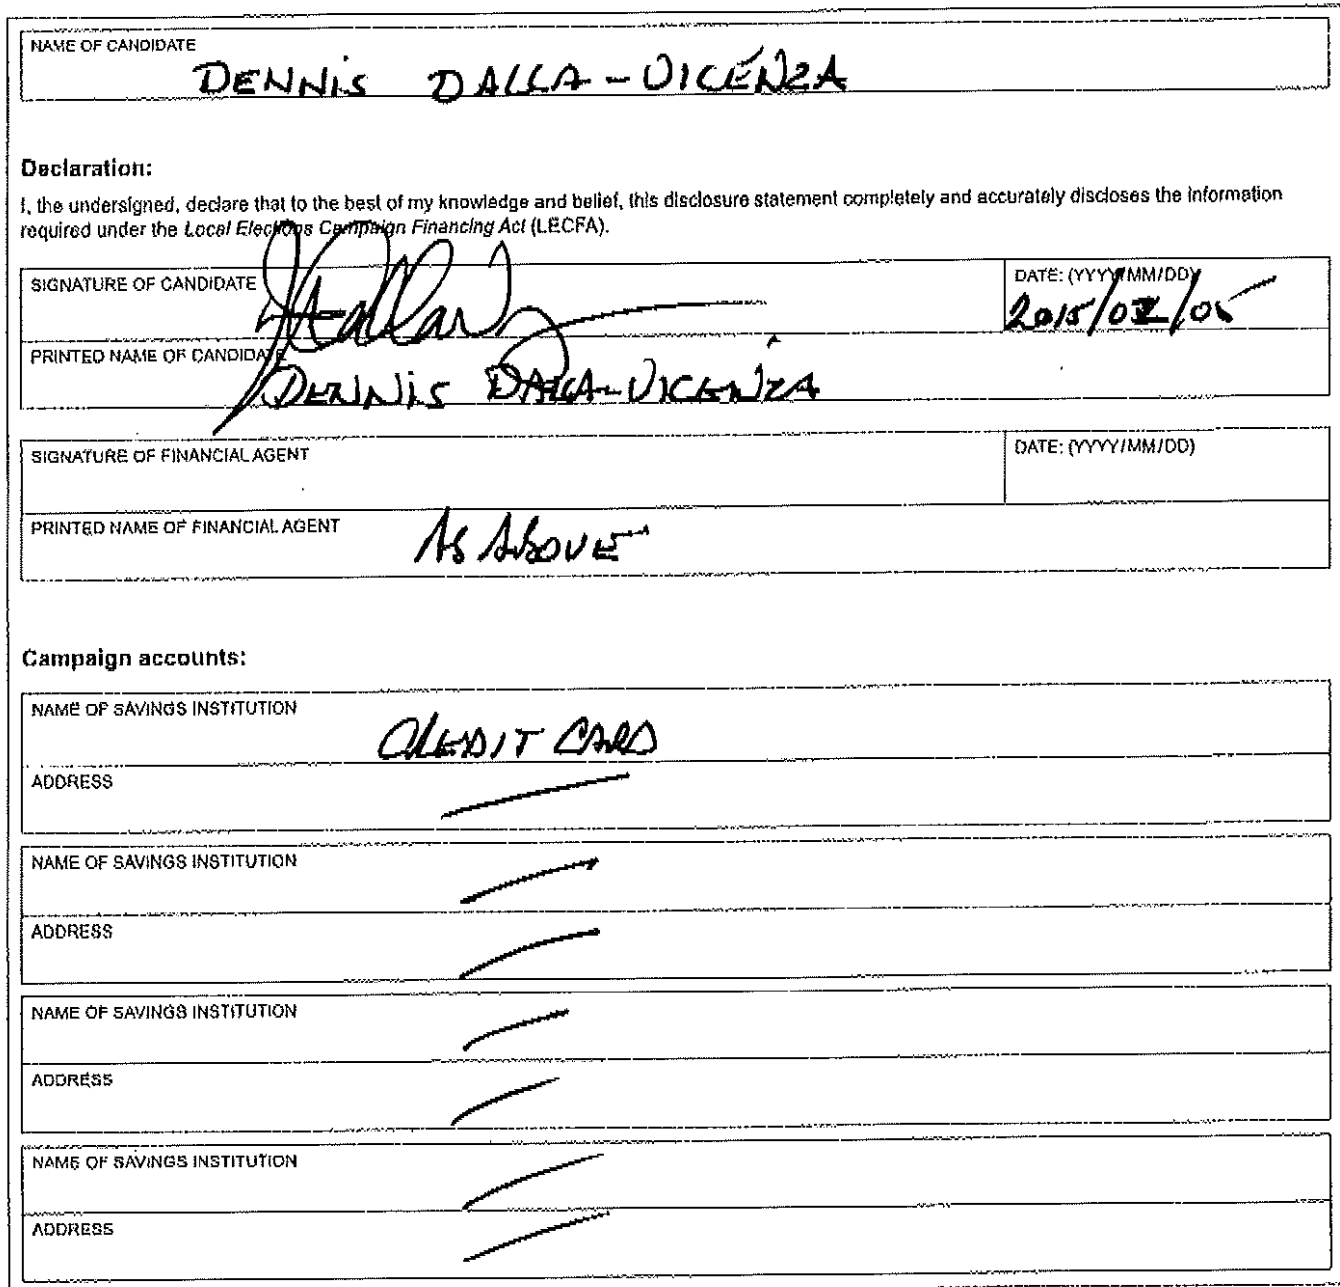 NAME OF CANDIDATE
DENNIS DALLA-VICENZA
Declaration:
I, the undersigned, declare that to the best of my knowledge and belief, this disclosure statement completely and accurately discloses the information
required under the Local Elections Campaign Financing Act (LECFA).
SIGNATURE OF CANDIDATE
DATE: (YYYY/MM/DD)
2015/02/05
PRINTED NAME OF CANDIDATE
DENNIS DALLA-VICENZA
SIGNATURE OF FINANCIAL AGENT
DATE: (YYYY/MM/DD)
PRINTED NAME OF FINANCIAL AGENT
AS ABOVE
Campaign accounts:
NAME OF SAVINGS INSTITUTION
CREDIT CARD
ADDRESS
NAME OF SAVINGS INSTITUTION
ADDRESS
NAME OF SAVINGS INSTITUTION
ADDRESS
NAME OF SAVINGS INSTITUTION
ADDRESS